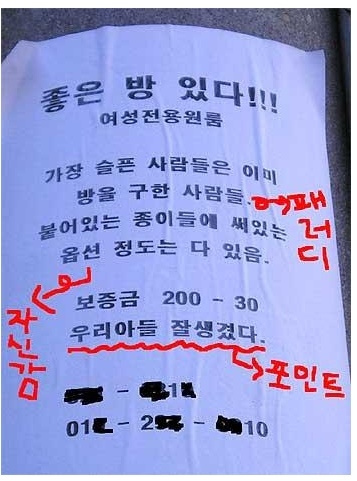 좋은 방 있다!!!
여성전용원룸
가장 슬픈 사람들은 이미
방을 구한 사람들.
패러디
붙어있는 종이들에 써있는
옵션 정도는 다 있음.
자신감
보증금 200 - 30
우리아들 잘생겼다.
포인트